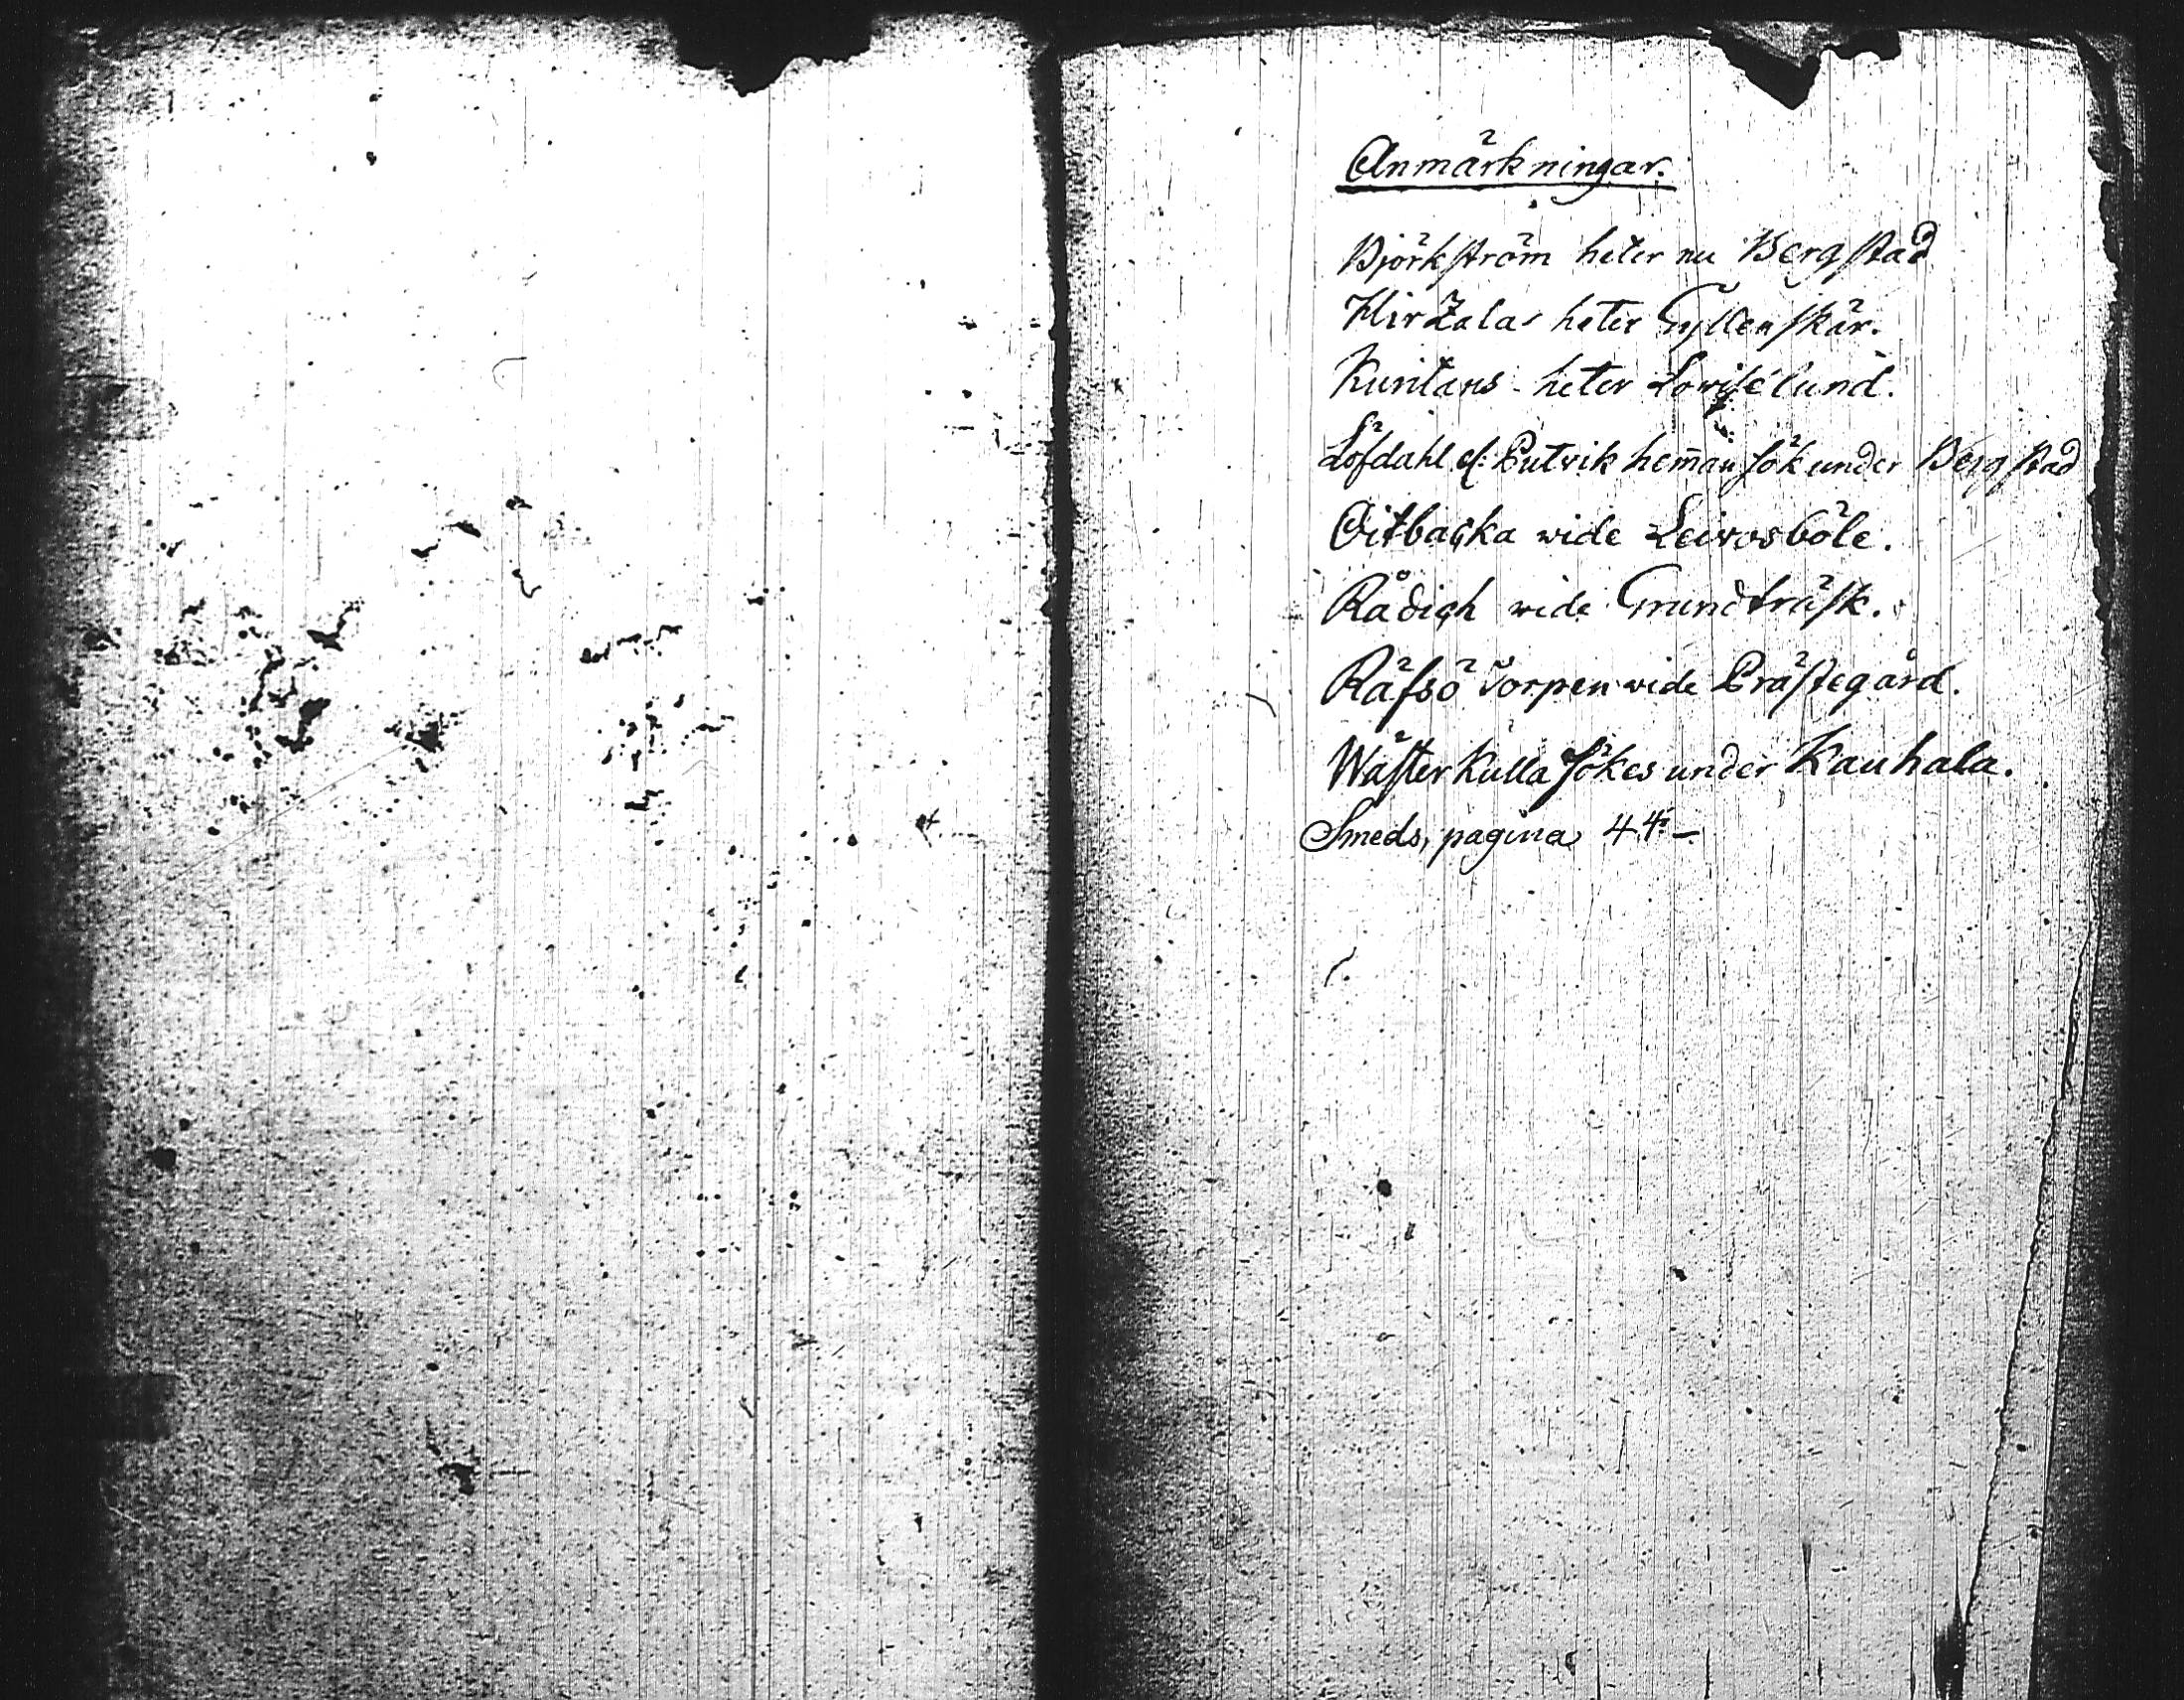 Anmärkningar.
Björkström heter nu Bergstad
Hirzalas heter Gyllenskär.
Kuritans heter Loviselund.
Löfdahl el: Putvik hem̄an sök under Bergstad
Oitbacka wide Leivosböle.
Rådich wide Grundträsk.
Räfsö Torpen wide Prästegård.
Wästerkulla sökes under Kauhala.
Smeds, pagina 44.-